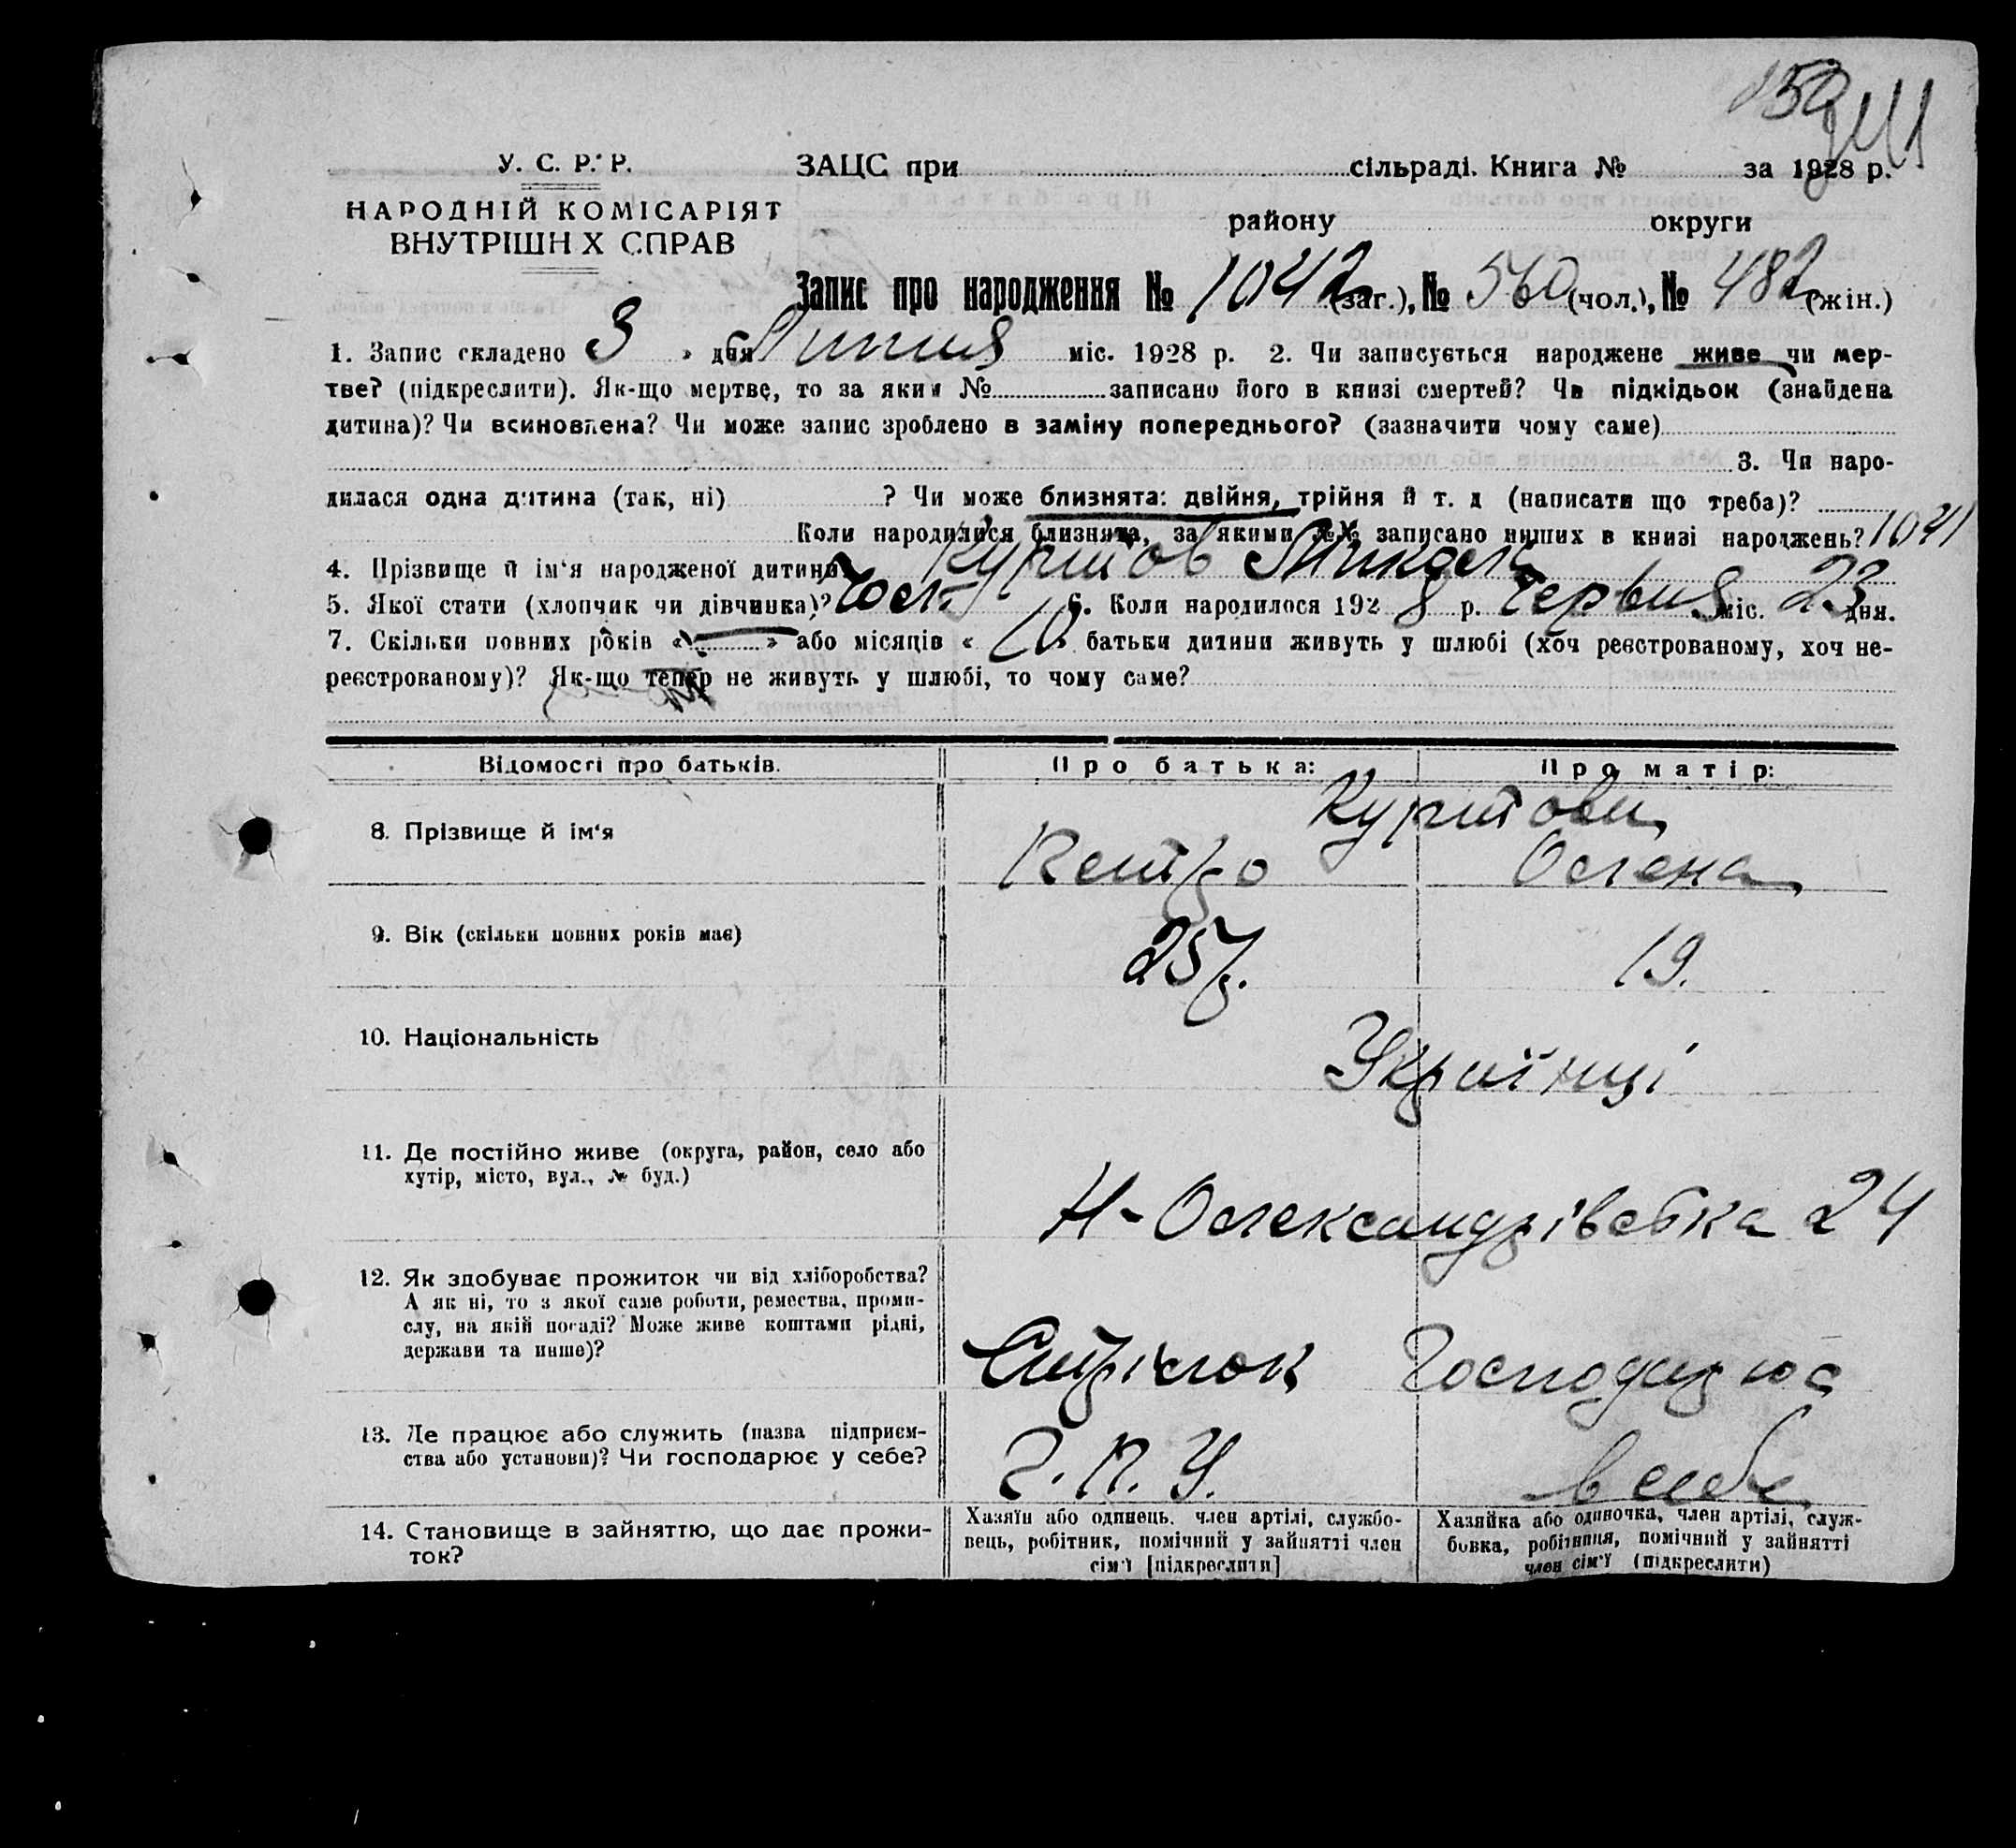 159
У. С. Р. Р.
ЗАЦС при сільраді. Книга № за 1928 р.
НАРОДНІЙ КОМІСАРІЯТ
ВНУТРІШН Х СПРАВ
району округи
Запис про народження № 1042 (заг.), № 560 (чол.), № 482 (жін.)
1. Запис складено « 3 » дня Липня міс. 1928 р. 2. Чи записується народжене живе чи мер-
тве? (підкреслити). Як-що мертве, то за яким № записано його в книзі смертей? Чи підкідьок (знайдена
дитина)? Чи всиновлена? Чи може запис зроблено в заміну попереднього? (зазначити чому саме)
3. Чи наро-
дилася одна дитина (так, ні) ? Чи може близнята: двійня, трійня й т. д (написати що треба)?
Коли народилися близнята, за якими №№ записано инших в книзі народжень? 1041
4. Прізвище й ім'я народженої дитини Куритов Микола
5. Якої стати (хлопчик чи дівчинка)? Чол. 6. Коли народилося 1928 р. Червня міс. 23 дня.
7. Скільки повних років « — » або місяців « 10 » батьки дитини живуть у шлюбі (хоч реєстрованому, хоч не-
реєстрованому)? Як-що тепер не живуть у шлюбі, то чому саме?
Відомості про батьків. Про батька: Про матір:
Куритови
8. Прізвище й ім'я Петро Олена
9. Вік (скільки повних років має) 25 р. 19.
10. Національність Українці
11. Де постійно живе (округа, район, село або
хутір, місто, вул., № буд.)
Н-Олександрівська 24
12. Як здобуває прожиток чи від хліборобства?
А як ні, то з якої саме роботи, ремества, проми-
слу, на якій посаді? Може живе коштами рідні,
держави та инше)?
Стрілок Господарює
13. Де працює або служить (назва підприєм-
ства або установи)? Чи господарює у себе?
Г. П. У. в себе
14. Становище в зайняттю, що дає прожи-
ток?
Хазяїн або одинець. член артілі, службо-
вець, робітник, помічний у зайнятті член
сім'ї [підкреслити]
Хазяйка або одиночка, член артілі, служ-
бовка, робітниця, помічний у зайнятті
член сім'ї (підкреслити)